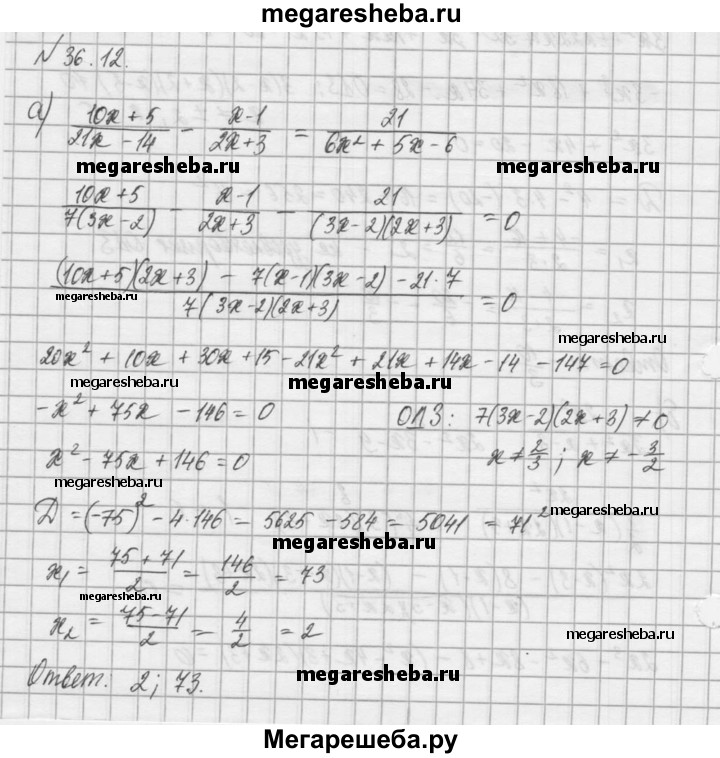 megaresheba.ru
№ 36.12.
а) (10x + 5)/(21x - 14) - (x - 1)/(2x + 3) = 21/(6x² + 5x - 6)
megaresheba.ru megaresheba.ru
(10x + 5)/(7(3x - 2)) - (x - 1)/(2x + 3) - 21/((3x - 2)(2x + 3)) = 0
((10x + 5)(2x + 3) - 7(x - 1)(3x - 2) - 21·7)/(7(3x - 2)(2x + 3)) = 0
megaresheba.ru megaresheba.ru
megaresheba.ru
20x² + 10x + 30x + 15 - 21x² + 21x + 14x - 14 - 147 = 0
megaresheba.ru megaresheba.ru
-x² + 75x - 146 = 0 ОДЗ: 7(3x - 2)(2x + 3) ≠ 0
x² - 75x + 146 = 0 x ≠ 2/3; x ≠ -3/2
megaresheba.ru
megaresheba.ru
D = (-75)² - 4·146 = 5625 - 584 = 5041 = 71²
megaresheba.ru
x₁ = (75 + 71)/2 = 146/2 = 73
megaresheba.ru
x₂ = (75 - 71)/2 = 4/2 = 2
megaresheba.ru
megaresheba.ru
Ответ. 2; 73.
Мегарешеба.ру